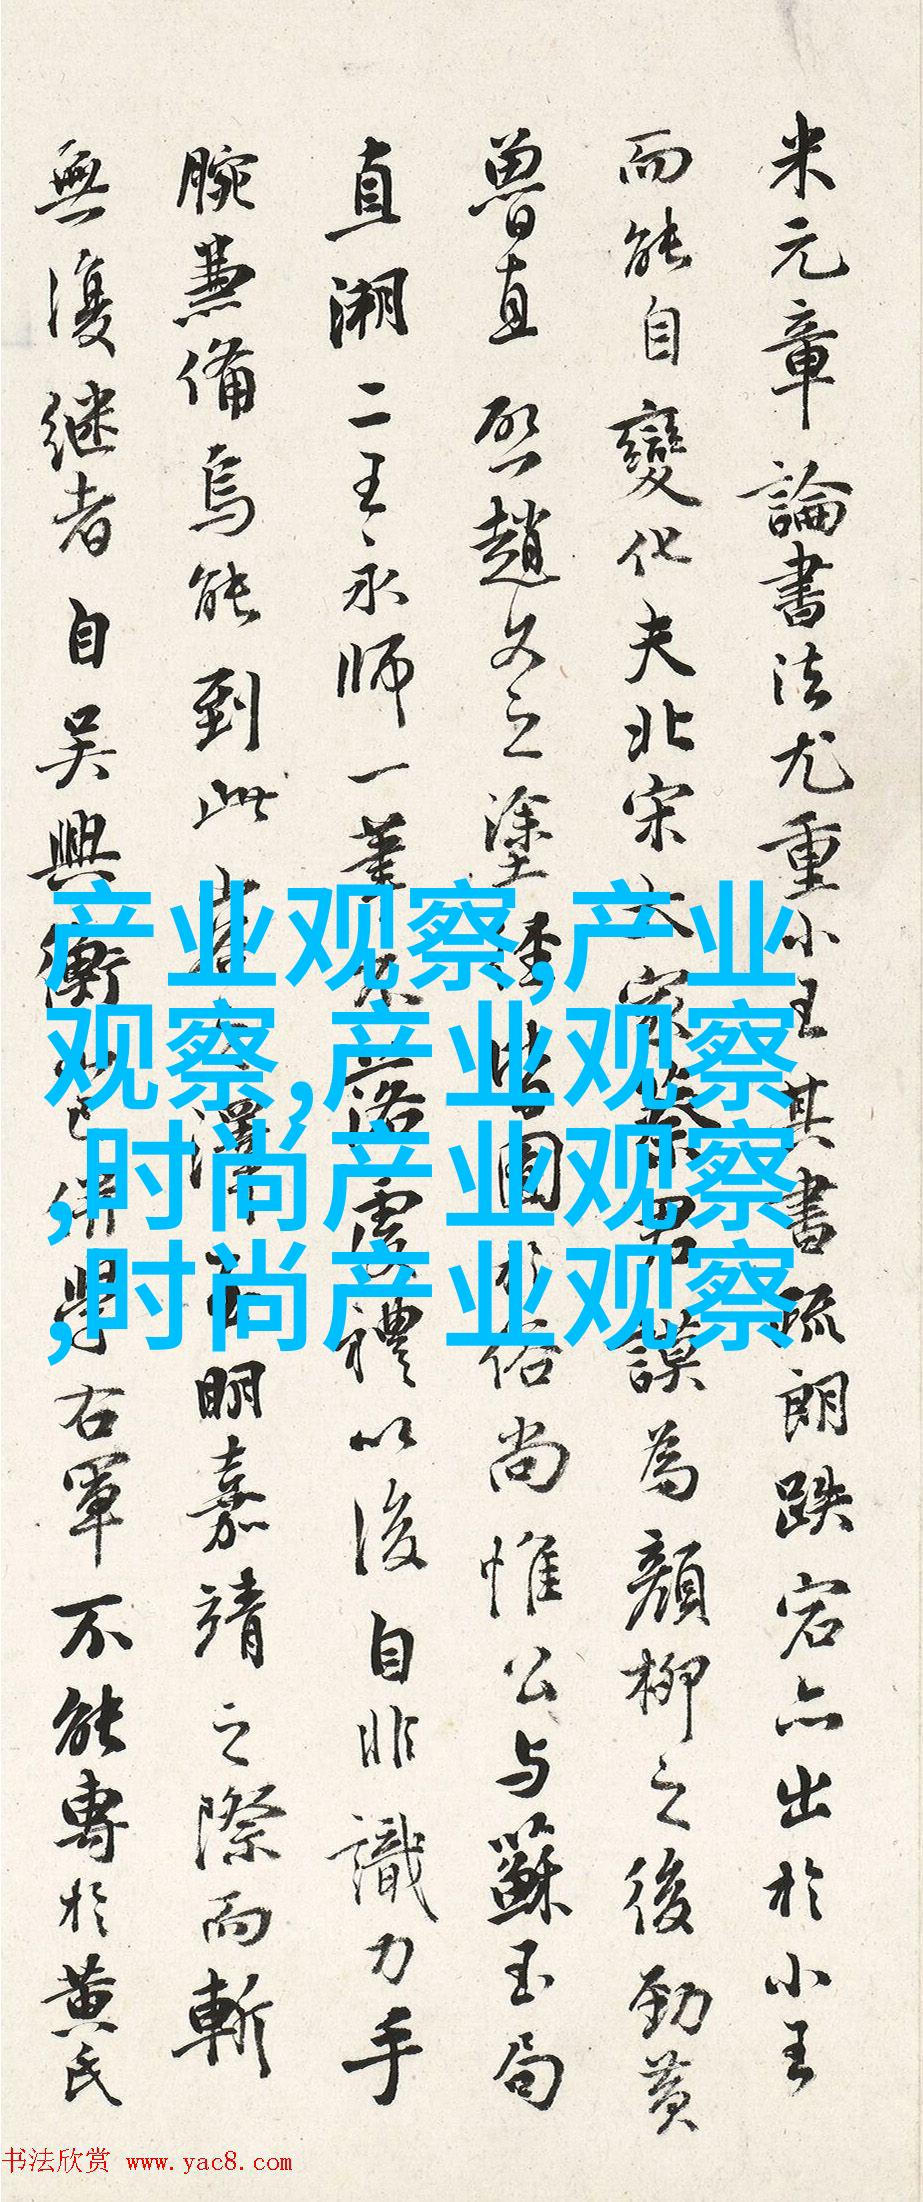 米元章論書法尤重小王其書疏朗跌宕亦出於小王
而能自變化夫北宋大家蔡君謨為顏柳之後勁黄
魯直啓趙文之塗 皆囿於俗尚惟公与蘇玉局
直溯二王永師一筆不落虞禮以後自非識力手
腕兼備烏能到此 明嘉靖之際而斬
無復继者自吴興衡 學右軍不能專於黄氏
产业观察,产业
观察,产业观察
,时尚产业观察
,时尚产业观察
书法欣赏 www.yac8.com